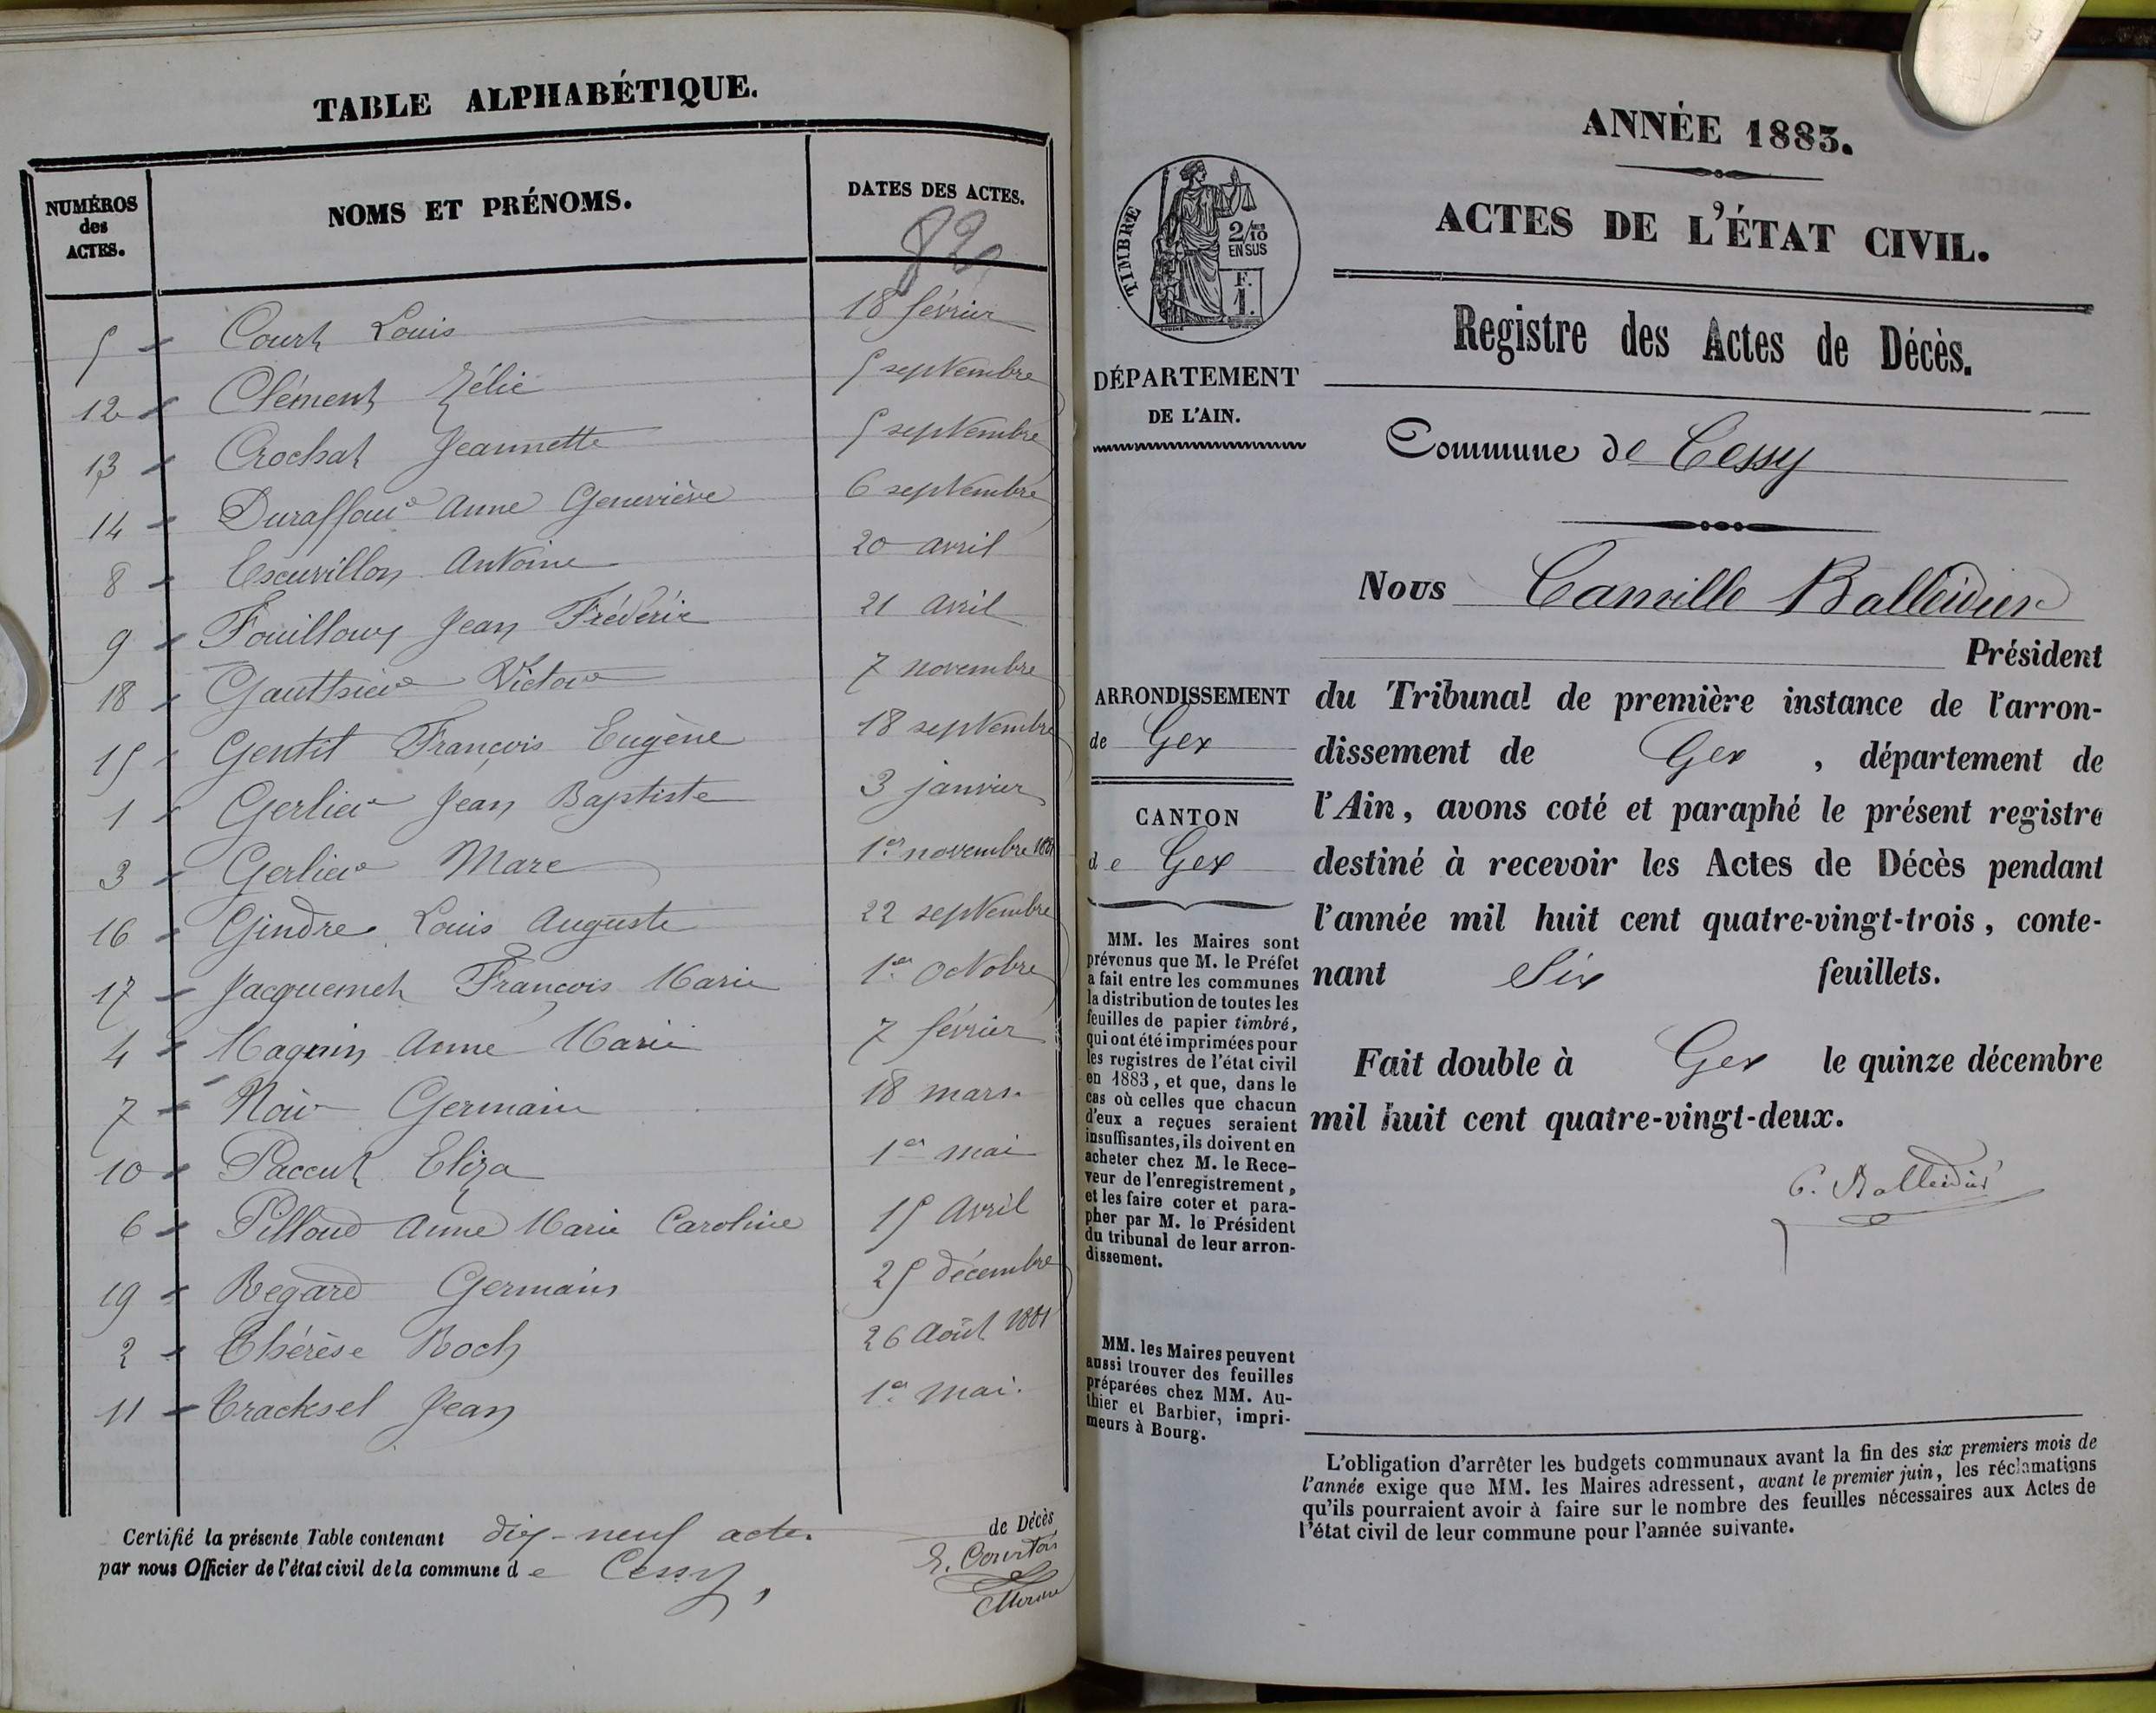 TABLE ALPHABÉTIQUE.
NUMÉROS
des
ACTES.
NOMS ET PRÉNOMS.
DATES DES ACTES.
82
5 Court Louis 18 février
12 Clément Zélie 5 septembre
13 Crochat Jeannette 5 septembre
14 Duraffour Anne Geneviève 6 septembre
8 Escuvillon Antoine 20 avril
9 Fouilloux Jean Frédéric 21 avril
18 Gauthier Victor 7 novembre
15 Gentit François Eugène 18 septembre
1 Gerlier Jean Baptiste 3 janvier
3 Gerlier Marc 1er novembre 1881
16 Gindre Louis Auguste 22 septembre
17 Jacquemet François Marie 1er octobre
4 Magnin Anne Marie 7 février
7 Noir Germain 18 mars
10 Paccut Eliza 1er mai
6 Pilloud Anne Marie Caroline 15 avril
19 Regard Germain 25 décembre
2 Thérèse Roch 26 août 1881
11 Tracksel Jean 1er mai.
Certifié la présente Table contenant dix-neuf actes de Décès
par nous Officier de l'état civil de la commune de Cessy,
ANNÉE 1883.
ACTES DE L'ÉTAT CIVIL.
TIMBRE
2/10
EN SUS
F.
1.
Registre des Actes de Décès.
DÉPARTEMENT
DE L'AIN.
Commune de Cessy
Nous Camille Balleidier
Président
du Tribunal de première instance de l'arron-
dissement de Gex, département de
l'Ain, avons coté et paraphé le présent registre
destiné à recevoir les Actes de Décès pendant
l'année mil huit cent quatre-vingt-trois, conte-
nant Six feuillets.
Fait double à Gex le quinze décembre
mil huit cent quatre-vingt-deux.
C. Balleidier
ARRONDISSEMENT
de Gex
CANTON
de Gex
MM. les Maires sont
prévenus que M. le Préfet
a fait entre les communes
la distribution de toutes les
feuilles de papier timbré,
qui ont été imprimées pour
les registres de l'état civil
en 1883, et que, dans le
cas où celles que chacun
d'eux a reçues seraient
insuffisantes, ils doivent en
acheter chez M. le Rece-
veur de l'enregistrement,
et les faire coter et para-
pher par M. le Président
du tribunal de leur arron-
dissement.
MM. les Maires peuvent
aussi trouver des feuilles
préparées chez MM. Au-
thier et Barbier, impri-
meurs à Bourg.
L'obligation d'arrêter les budgets communaux avant la fin des six premiers mois de
l'année exige que MM. les Maires adressent, avant le premier juin, les réclamations
qu'ils pourraient avoir à faire sur le nombre des feuilles nécessaires aux Actes de
l'état civil de leur commune pour l'année suivante.